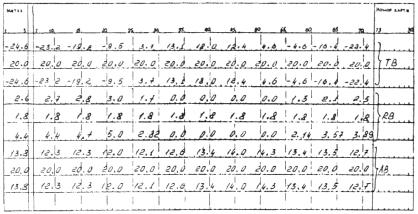 -24.6 -23.2 -19.2 -9.5 3.7 13.2 18.0 12.4 4.6 -4.6 -16.4 -22.4
20.0 20.0 20.0 20.0 20.0 20.0 20.0 20.0 20.0 20.0 20.0 20.0 TB
-24.6 -23.2 -19.2 -9.5 3.7 13.2 18.0 12.4 4.6 -4.6 -16.4 -22.4
2.6 2.7 2.8 3.0 1.7 0.0 0.0 0.0 0.0 1.3 2.2 2.5
1.8 1.8 1.8 1.8 1.8 1.8 1.8 1.8 1.8 1.8 1.8 1.8 RB
4.4 4.4 4.7 5.0 2.82 0.0 0.0 0.0 0.0 2.14 3.57 3.89
13.8 12.3 12.3 12.0 12.1 12.0 13.4 14.0 14.3 13.4 13.5 12.7
20.0 20.0 20.0 20.0 20.0 20.0 20.0 20.0 20.0 20.0 20.0 20.0 AB
13.8 12.3 12.3 12.0 12.1 12.0 13.4 14.0 14.3 13.4 13.5 12.7